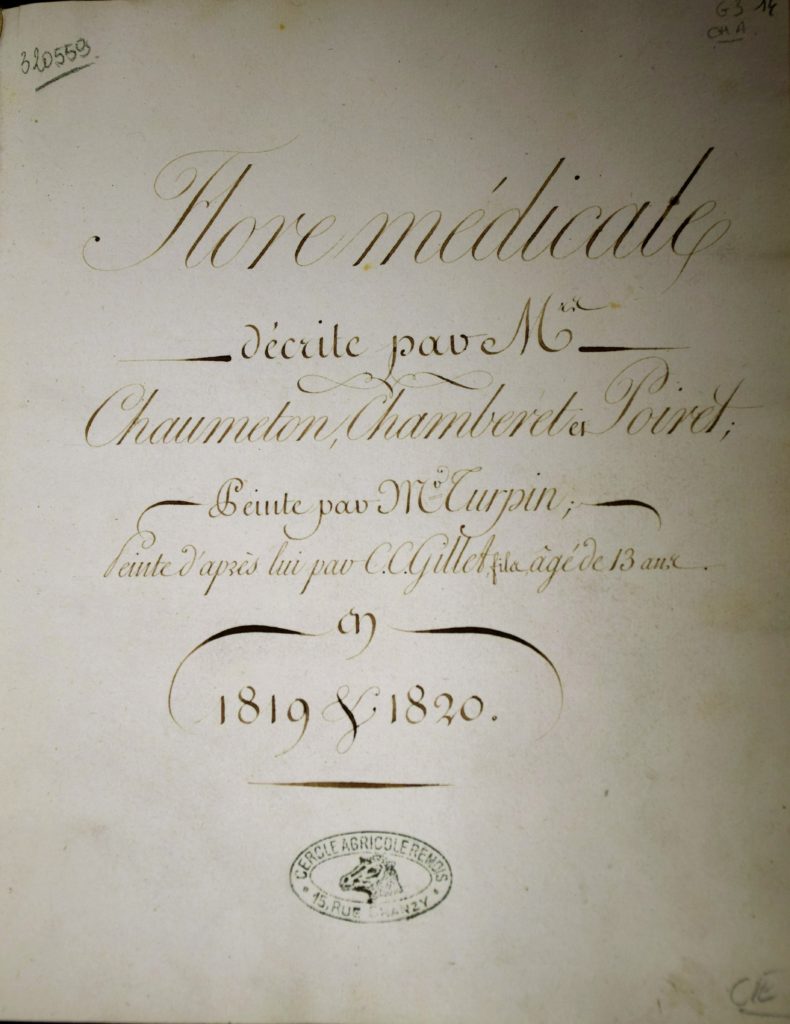 320559
G3 14
CHA
Flore médicale
décrite par Mrs
Chaumeton, Chamberet et Poiret;
Peinte par Mr Turpin;
Peinte d'après lui par C.C. Gillet, fils, âgé de 13 ans.
en
1819 & 1820.
CERCLE AGRICOLE REMOIS
15, RUE CHANZY